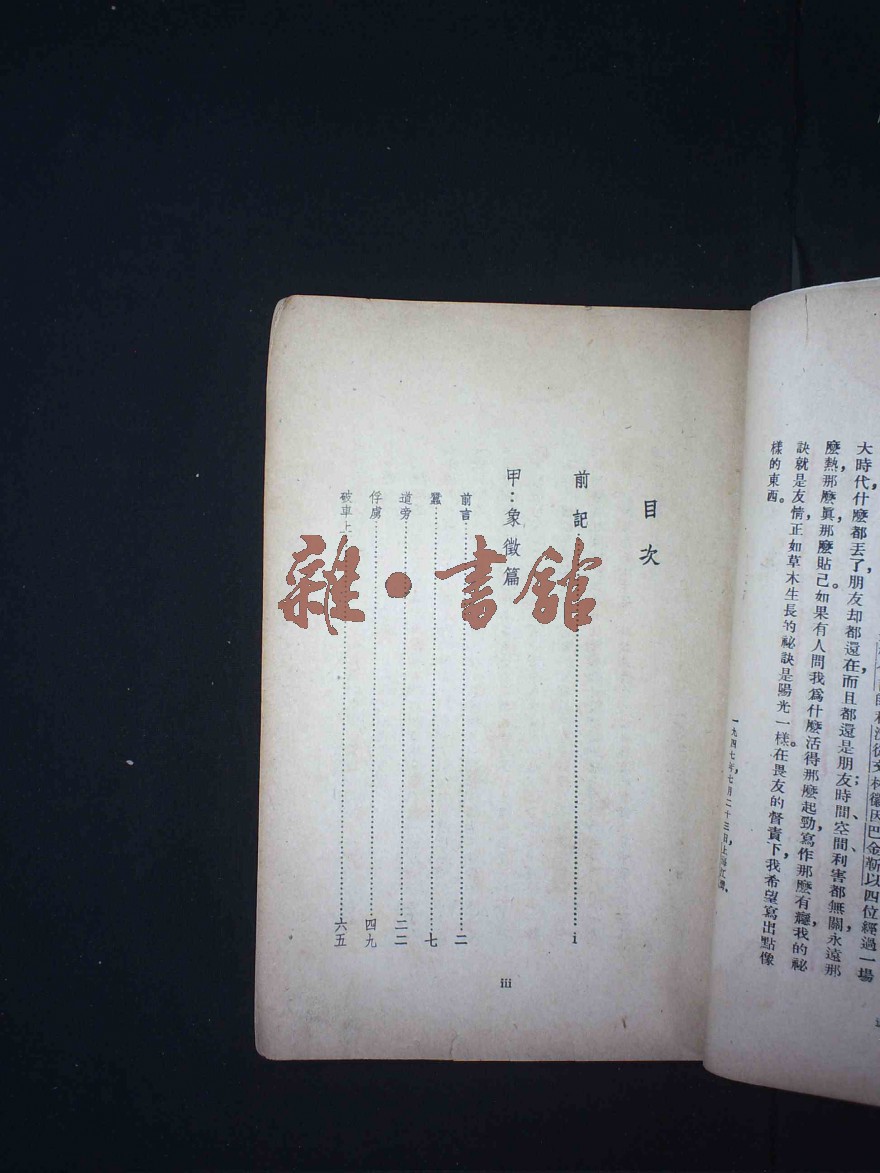 自和沈從文林徽因巴金靳以四位經過一場
大時代，什麼都丟了，朋友却都還在，而且都還是朋友；時間、空間、利害都無關，永遠那
麼熱，那麼眞，那麼貼己。如果有人問我爲什麼活得那麼起勁，寫作那麼有癮，我的祕
訣就是友情，正如草木生長的祕訣是陽光一樣。在畏友的督責下，我希望寫出點像
樣的東西。
一九四七年，七月二十三日，上海江灣。
目次
前記 i
甲：象徵篇
前言 二
蠶 七
道旁 二二
俘虜 四九
破車上 六五
iii
雜·書館